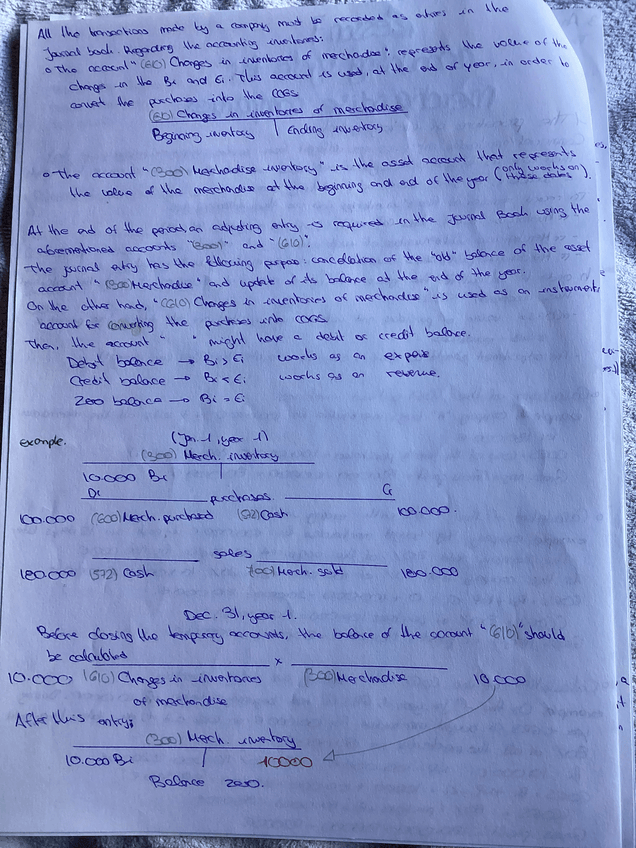 All the transactions made by a company must be recorded as entries in the
Journal book. Regarding the accounting inventories:
o The account "(610) Changes in inventories of merchadise": represents the value of the
changes in the Bi and Ei. This account is used, at the end of year, in order to
convert the purchases into the COGS
(610) Changes in inventories of merchadise
Beginning inventory | Ending inventory
o The account "(300) Merchadise inventory" is the asset account that represents
the value of the merchadise at the beginning and end of the year (only works on these dates).
At the end of the period an adjusting entry is required in the Journal Book using the
aforementioned accounts "(300)" and "(610)":
The journal entry has the following purpose: cancellation of the "old" balance of the asset
account "(300) Merchadise" and update of its balance at the end of the year.
On the other hand, "(610) Changes in inventories of merchadise" is used as an instrumental
account for converting the purchases into COGS
Then, the account "    " might have a debit or credit balance.
Debit balance → Bi > Ei works as an expense
Credit balance → Bi < Ei works as an revenue.
Zero balance → Bi = Ei
example.
(Jan-1, year -1)
(300) Merch. inventory
10.000 Bi
Di purchases. Ci
100.000 (600) Merch. purchased (572) Cash 100.000.
sales
180.000 (572) Cash (700) Merch. sold 180.000
Dec. 31, year -1.
Before closing the temporary accounts, the balance of the account "(610)" should
be calculated
x
10.000 (610) Changes in inventories (300) Merchadise 10.000
of merchadise
After this entry:
(300) Merch. inventory
10.000 Bi | 10000
Balance zero.